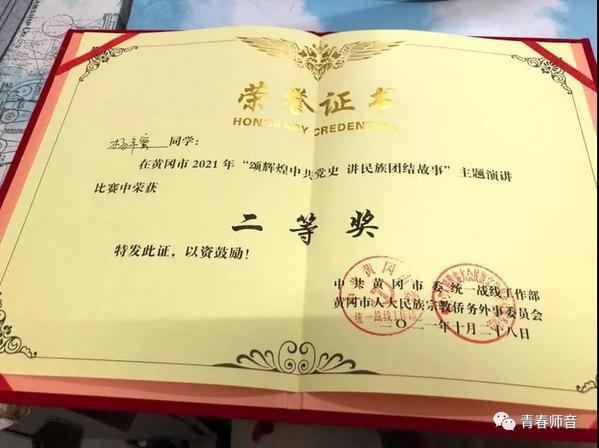 荣誉证书
HONORARY CREDENTIAL
同学：
在黄冈市2021年“颂辉煌中共党史 讲民族团结故事”主题演讲
比赛中荣获
二等奖
特发此证，以资鼓励！
中共黄冈市委统一战线工作部
黄冈市人大民族宗教侨务外事委员会
二〇二一年十月二十八日
统一战线工作部
青春师音